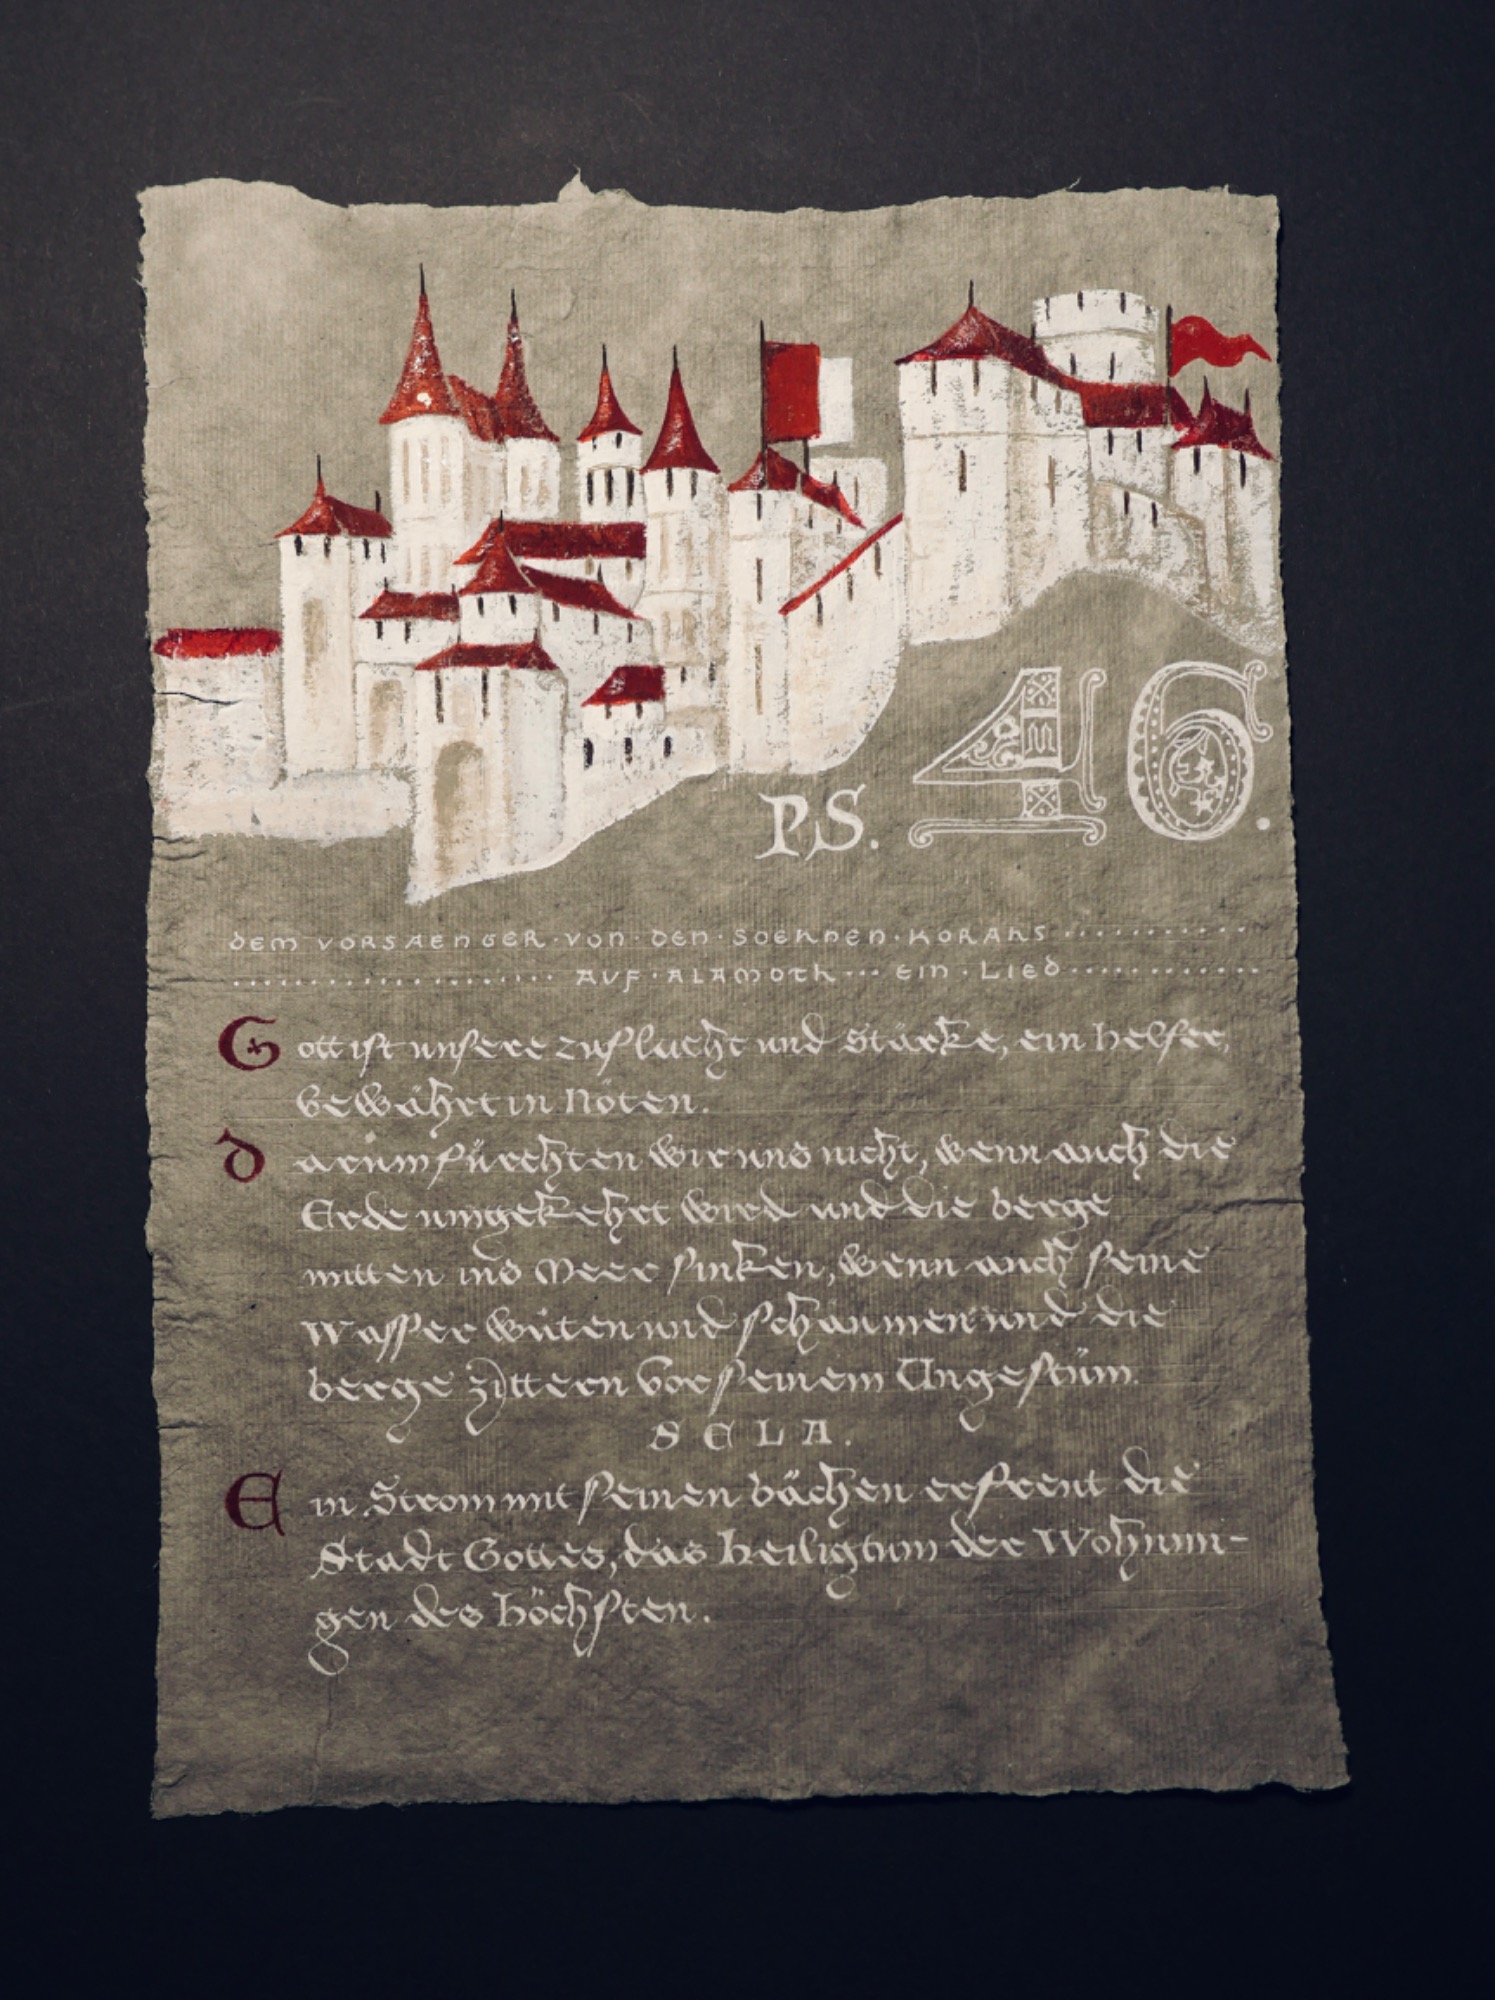 PS. 46.
DEM VORSAENGER·VON·DEN·SOEHNEN·KORAHS
AUF·ALAMOTH··· EIN·LIED
Gott ist unsere zuflucht und Stärke, ein helfer,
bewährt in Nöten.
darum fürchten wir uns nicht, wenn auch die
Erde umgekehrt wird und die berge
mitten ins Meer sinken, wenn auch seine
Wasser wüten und schäumen und die
berge zittern vor seinem Ungestüm.
SELA.
Ein Strom mit seinen bächen erfreut die
Stadt Gottes, das heiligtum der Wohnun-
gen des höchsten.